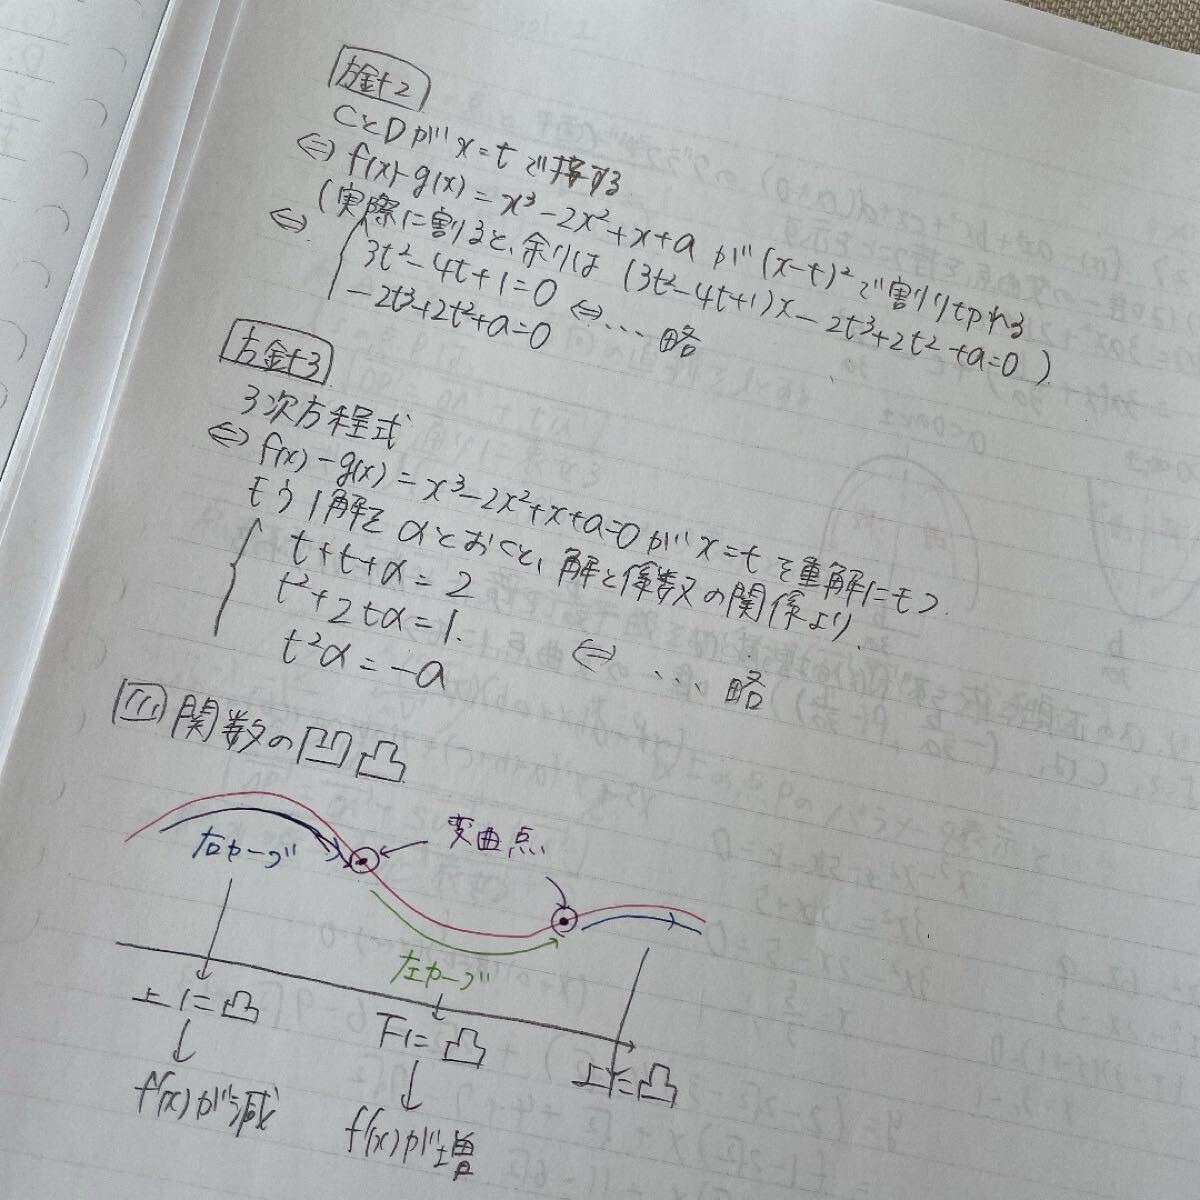 方針2
CとDがx=tで接する
⇔ f(x)-g(x)=x³-2x²+x+aが(x-t)²で割り切れる
(実際に割ると、余りは(3t²-4t+1)x-2t³+2t²+a=0)
⇔ { 3t²-4t+1=0
-2t³+2t²+a=0 ⇔…略
方針3
3次方程式
⇔ f(x)-g(x)=x³-2x²+x+a=0がx=tを重解にもつ
もう1解をαとおくと、解と係数の関係より
{ t+t+α=2
t²+2tα=1.
t²α=-a ⇔ … 略
三 関数の凹凸
変曲点
右カーブ
左カーブ
上に凸
下に凸
上に凸
f'(x)が減
f'(x)が増